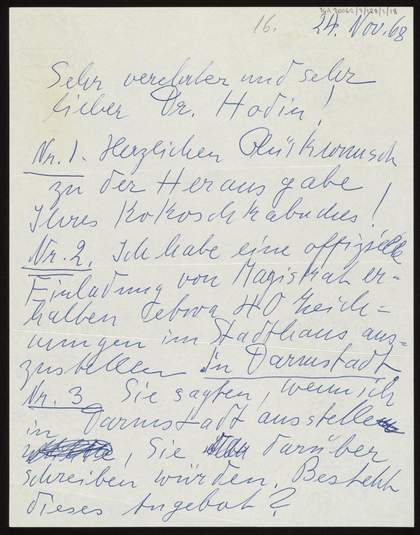 16. 24. Nov. 68
Sehr verehrter und sehr
lieber Dr. Hodin!
Nr. 1. Herzlichen Glückwunsch
zu der Herausgabe
Ihres Kokoschkabuches!
Nr. 2. Ich habe eine offizielle
Einladung vom Magistrat er-
halten etwa 40 Zeich-
nungen im Stadthaus aus-
zustellen in Darmstadt
Nr. 3 Sie sagten, wenn ich
in Darmstadt ausstelle
, Sie darüber
schreiben würden. Besteht
dieses Angebot?